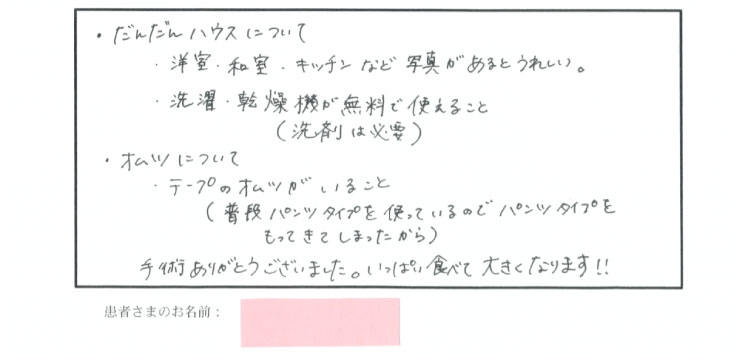 ・だんだんハウスについて
・洋室・和室・キッチンなど写真があるとうれしい。
・洗濯・乾燥機が無料で使えること
(洗剤は必要)
・オムツについて
・テープのオムツがいること
(普段パンツタイプを使っているのでパンツタイプを
もってきてしまったから)
手術ありがとうございました。いっぱい食べて大きくなります!!
患者さまのお名前：